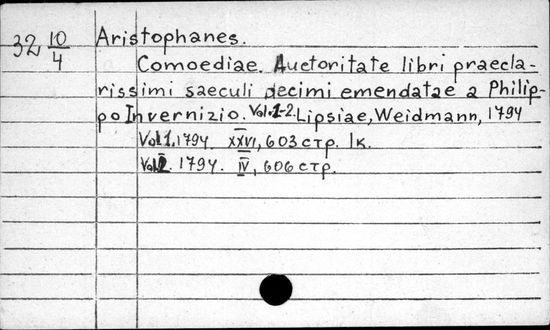 32 10/4
Aristophanes.
Comoediae. Auctoritate libri praecla-
rissimi saeculi decimi emendatae a Philip-
po Invernizio. Vol. 1-2. Lipsiae, Weidmann, 1794
Vol. 1. 1794. XXVI, 603 стр. 1к.
Vol. 2. 1794. IV, 606 стр.